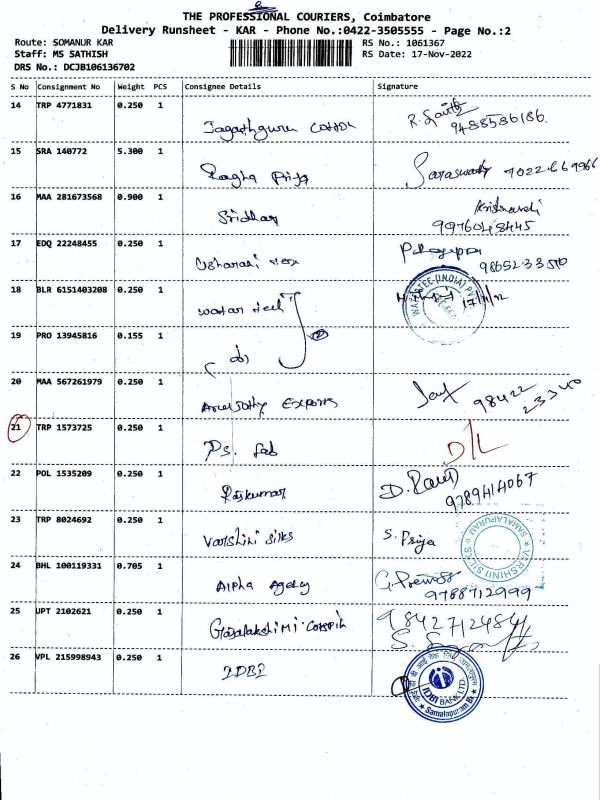 THE PROFESSIONAL COURIERS, Coimbatore
Delivery Runsheet - KAR - Phone No.:0422-3505555 - Page No.:2
Route: SOMANUR KAR
RS No.: 1061367
Staff: MS SATHISH
RS Date: 17-Nov-2022
DRS No.: DCJB106136702
S No Consignment No Weight PCS Consignee Details Signature
14 TRP 4771831 0.250 1
Jagathguru
9488586186
15 SRA 140772 5.300 1
Ragha Priya Saraswathy
16 MAA 281673568 0.900 1
Sridhar
9976048445
17 EDQ 22248455 0.250 1
18 BLR 6151403208 0.250 1
water tech
19 PRO 13945816 0.155 1
20 MAA 567261979 0.250 1
Exports 98422 23340
21 TRP 1573725 0.250 1
Ps. D/L
22 POL 1535209 0.250 1
Rajkumar 9789414067
23 TRP 8024692 0.250 1
Varshini Silks S. Priya
VARSHINI SILKS SAMALAPURAM
24 BHL 100119331 0.705 1
Alpha Agency 9788712999
25 UPT 2102621 0.250 1
9842712484
26 VPL 215998943 0.250 1
IDBI
IDBI BANK LTD
Samalapuram Br